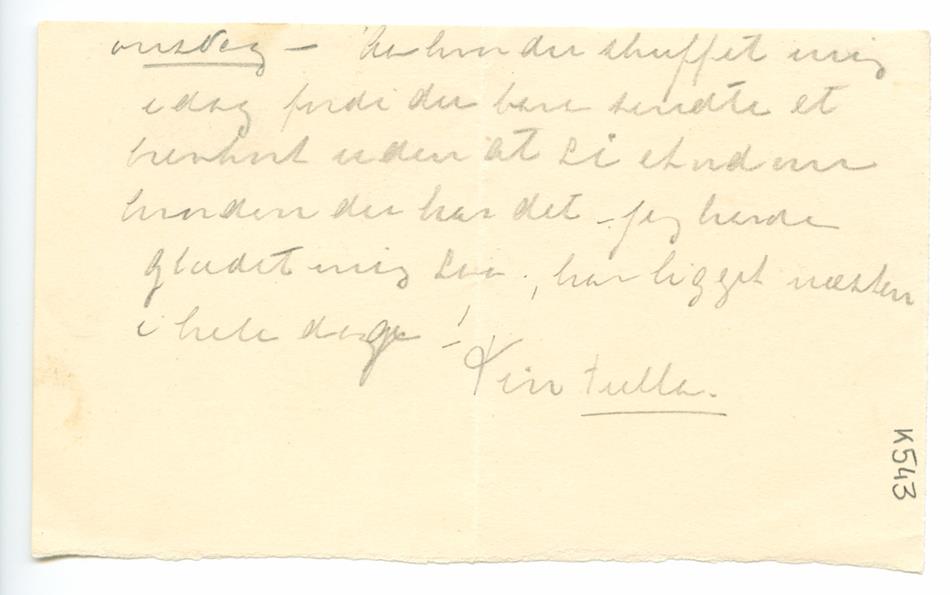 onsdag – Aa hvor du skuffet mig
idag fordi du bare sendte et
brevkort uden at si et ord om
hvordan du har det – jeg havde
glædet mig saa, har ligget næsten
i hele dage! –
Din Tulla.
K543